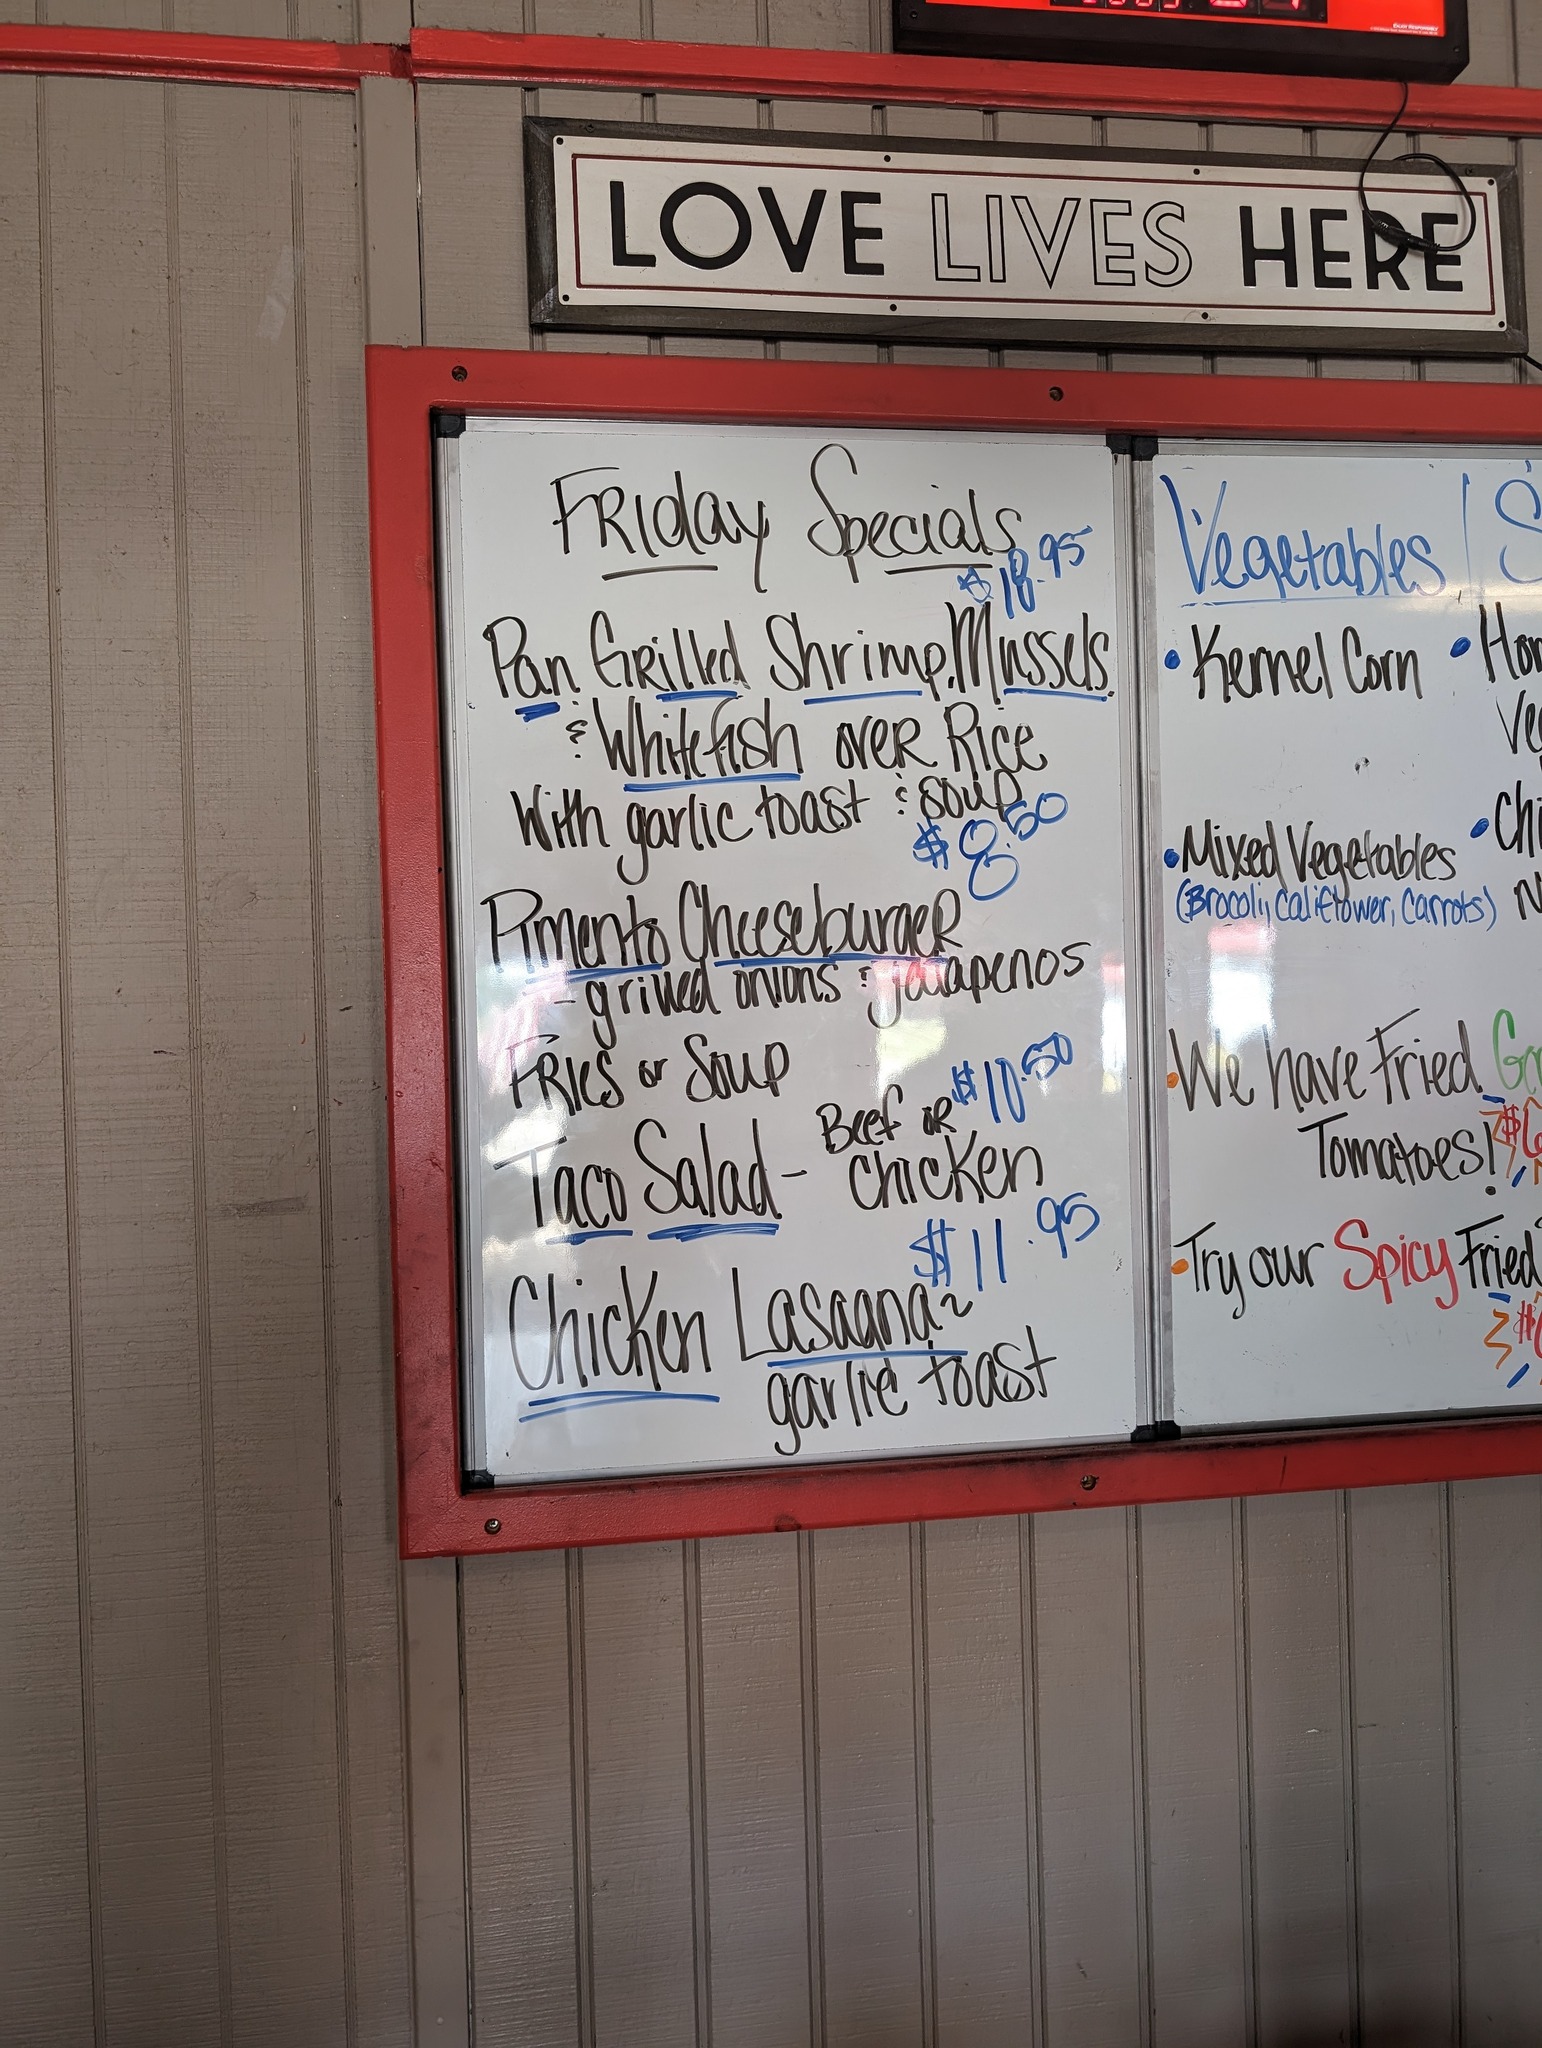 LOVE LIVES HERE
FRIday Specials
$18.95
Pan Grilled Shrimp, Mussels
& Whitefish over Rice
With garlic toast & soup
$8.50
Pimento Cheeseburger
- grilled onions & jalapenos
FRies or Soup
$10.50
Taco Salad - Beef or
chicken
$11.95
Chicken Lasagna ~
garlic toast
Vegetables
• Kernel Corn
• Mixed Vegetables
(Brocoli, califlower, carrots)
• We have Fried
Tomatoes!
• Try our Spicy Fried